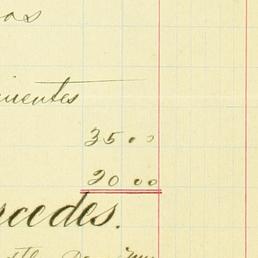 os
uientes
35 00
20 00
rcedes.